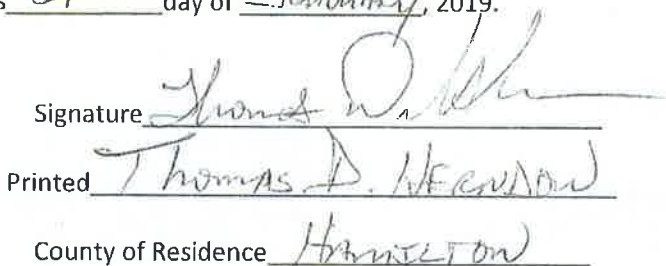 day of January, 2019.
Signature Thomas D.
Printed Thomas D. HERNDON
County of Residence HAMILTON